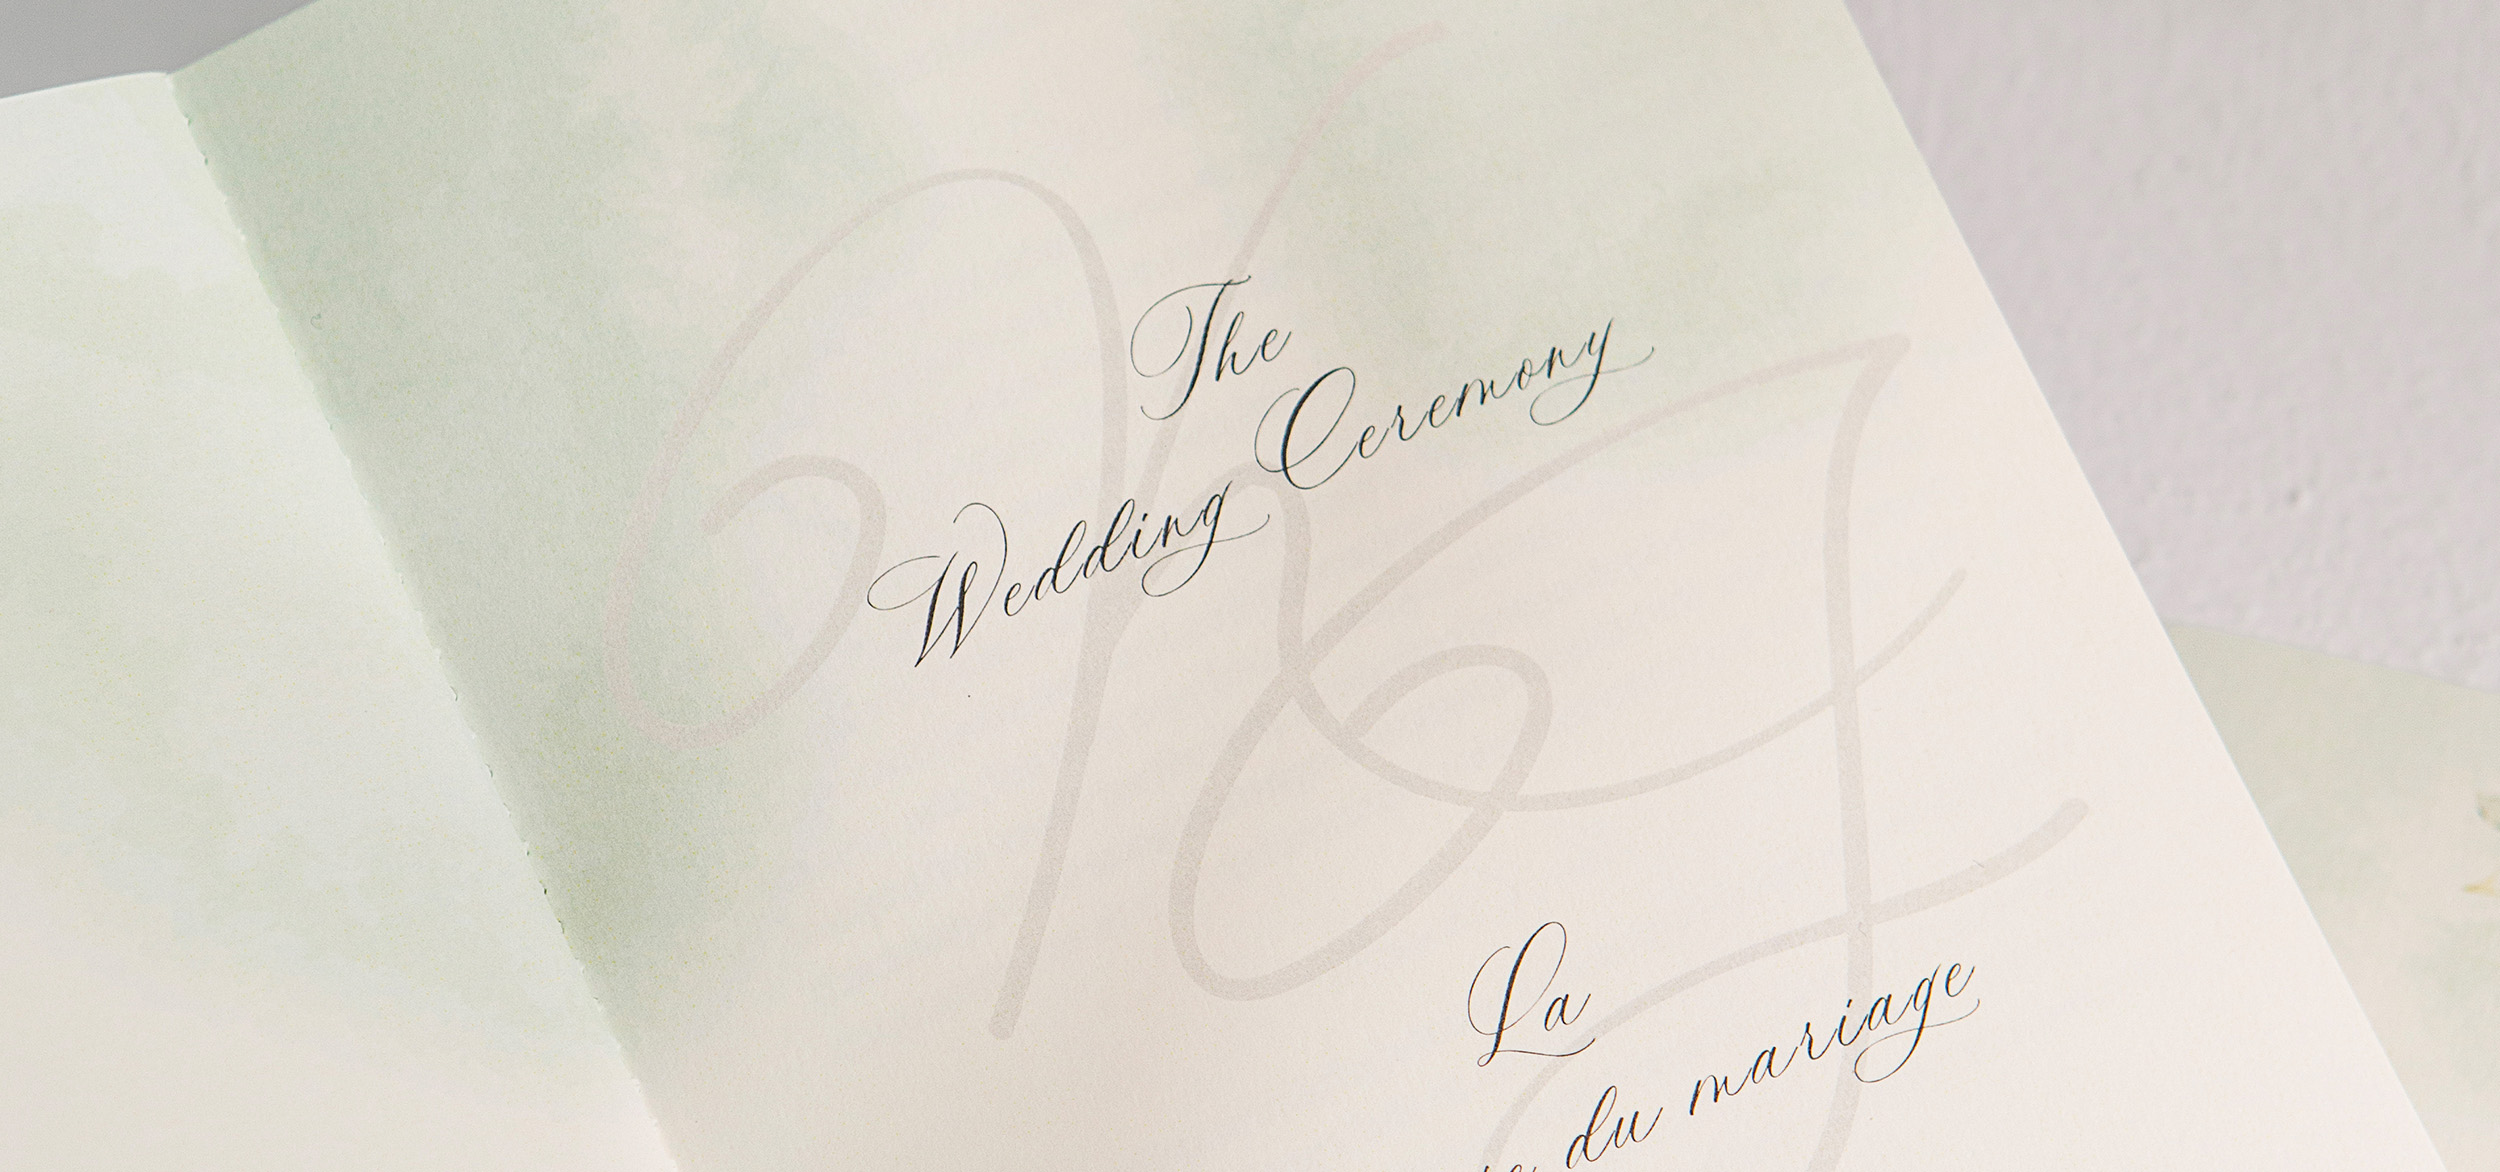 The
Wedding Ceremony
La
du mariage